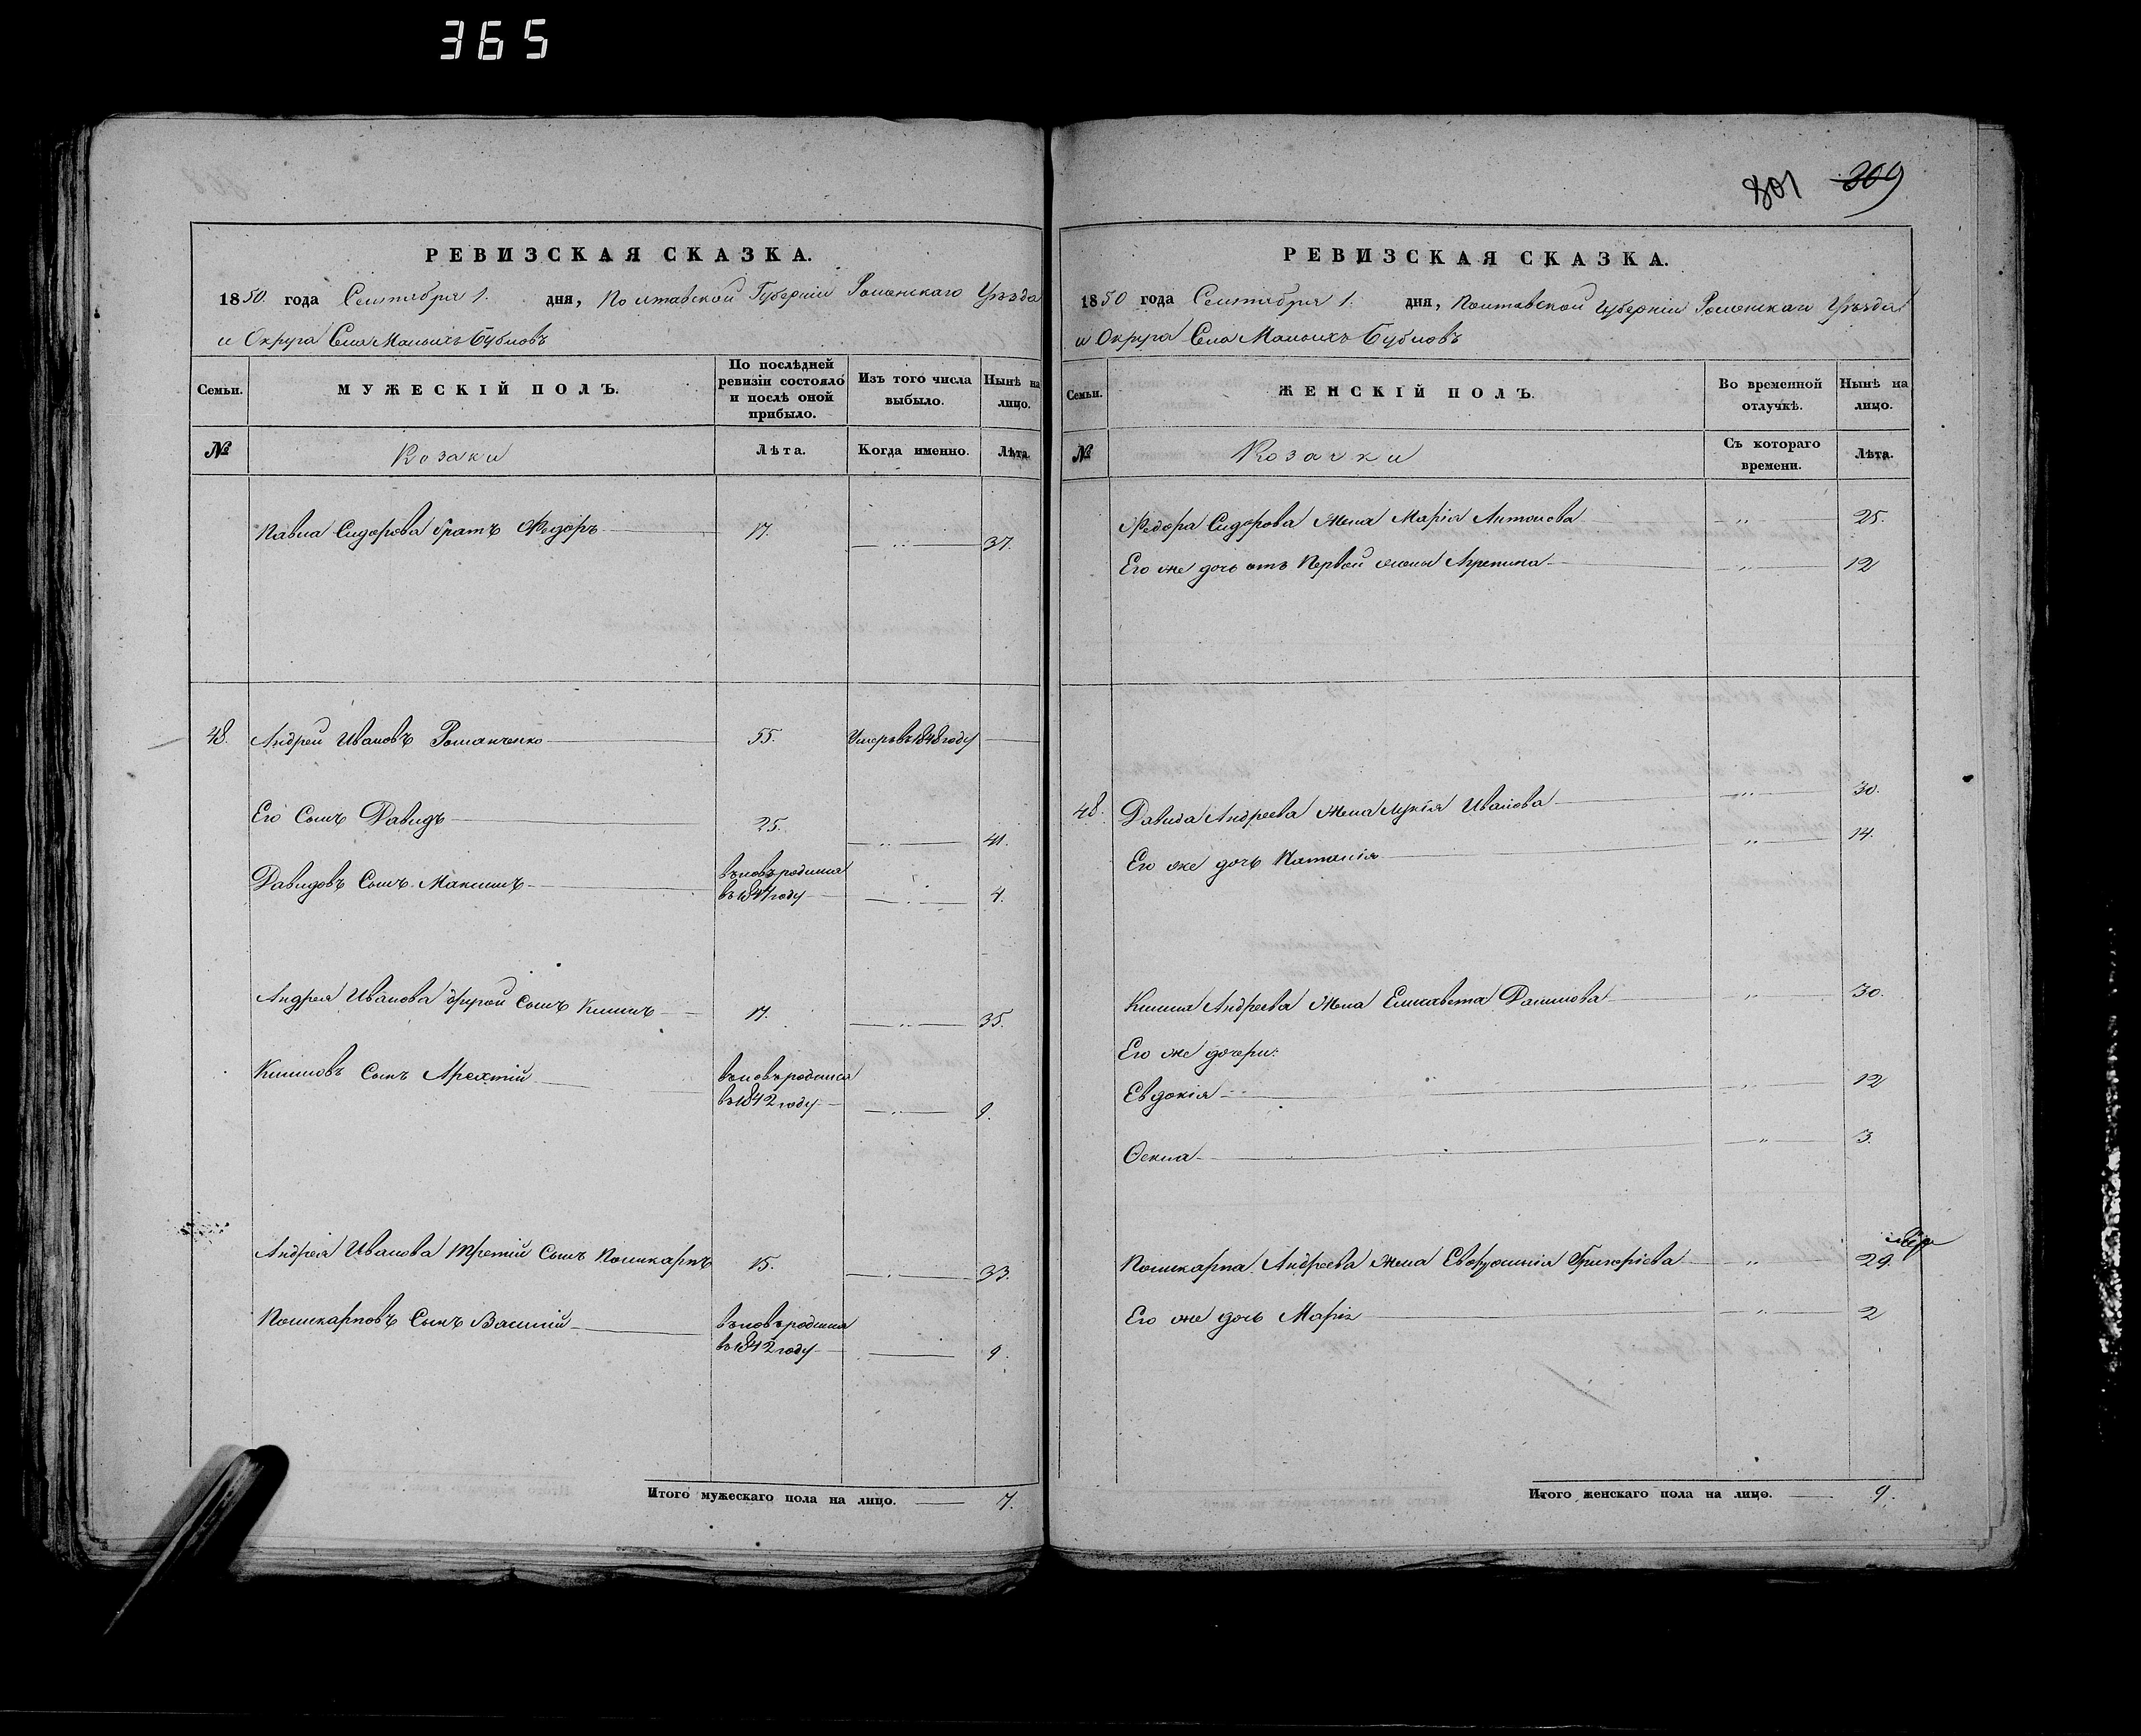 365
801 309
РЕВИЗСКАЯ СКАЗКА.
1850 года Сентября 1. дня, Полтавской Губерніи Роменскаго Уѣзда
и Округа Села Малыхъ Бубновъ
Семьи. МУЖЕСКІЙ ПОЛЪ. По послѣдней ревизіи состояло и послѣ оной прибыло. Изъ того числа выбыло. Нынѣ на лицо.
№ Козаки Лѣта. Когда именно. Лѣта.
Павла Сидорова братъ Ѳедоръ 17. 37.
48. Андрей Ивановъ Романченко 55. Умеръ въ 1848 году
Его Сынъ Давидъ 25. 41.
Давидовъ Сынъ Максимъ вновь родился
въ 1847 году 4.
Андрея Иванова другой Сынъ Климъ 17. 35.
Климовъ Сынъ вновь родился
въ 1842 году 9.
Андрея Иванова третій Сынъ Поликарпъ 15. 33.
Поликарповъ Сынъ Василій вновь родился
въ 1842 году 9.
Итого мужескаго пола на лицо. 7.
РЕВИЗСКАЯ СКАЗКА.
1850 года Сентября 1. дня, Полтавской Губерніи Роменскаго Уѣзда
и Округа Села Малыхъ Бубновъ
Семьи. ЖЕНСКІЙ ПОЛЪ. Во временной отлучкѣ. Нынѣ на лицо.
№ Козачки Съ котораго времени. Лѣта.
Ѳедора Сидорова Жена Марія Антонова " 25.
Его же дочь отъ Первой жены Агрепина " 12
48. Давида Андреева Жена Лукія Иванова " 30.
Его же дочь Наталія " 14.
Клима Андреева Жена Елисавета Данилова " 30.
Его же дочери:
Евдокія " 12
Оекла " 3.
Поликарпа Андреева жена Евфросинія Григоріева " 29.
Его же дочь Марія " 2
Итого женскаго пола на лицо. 9.